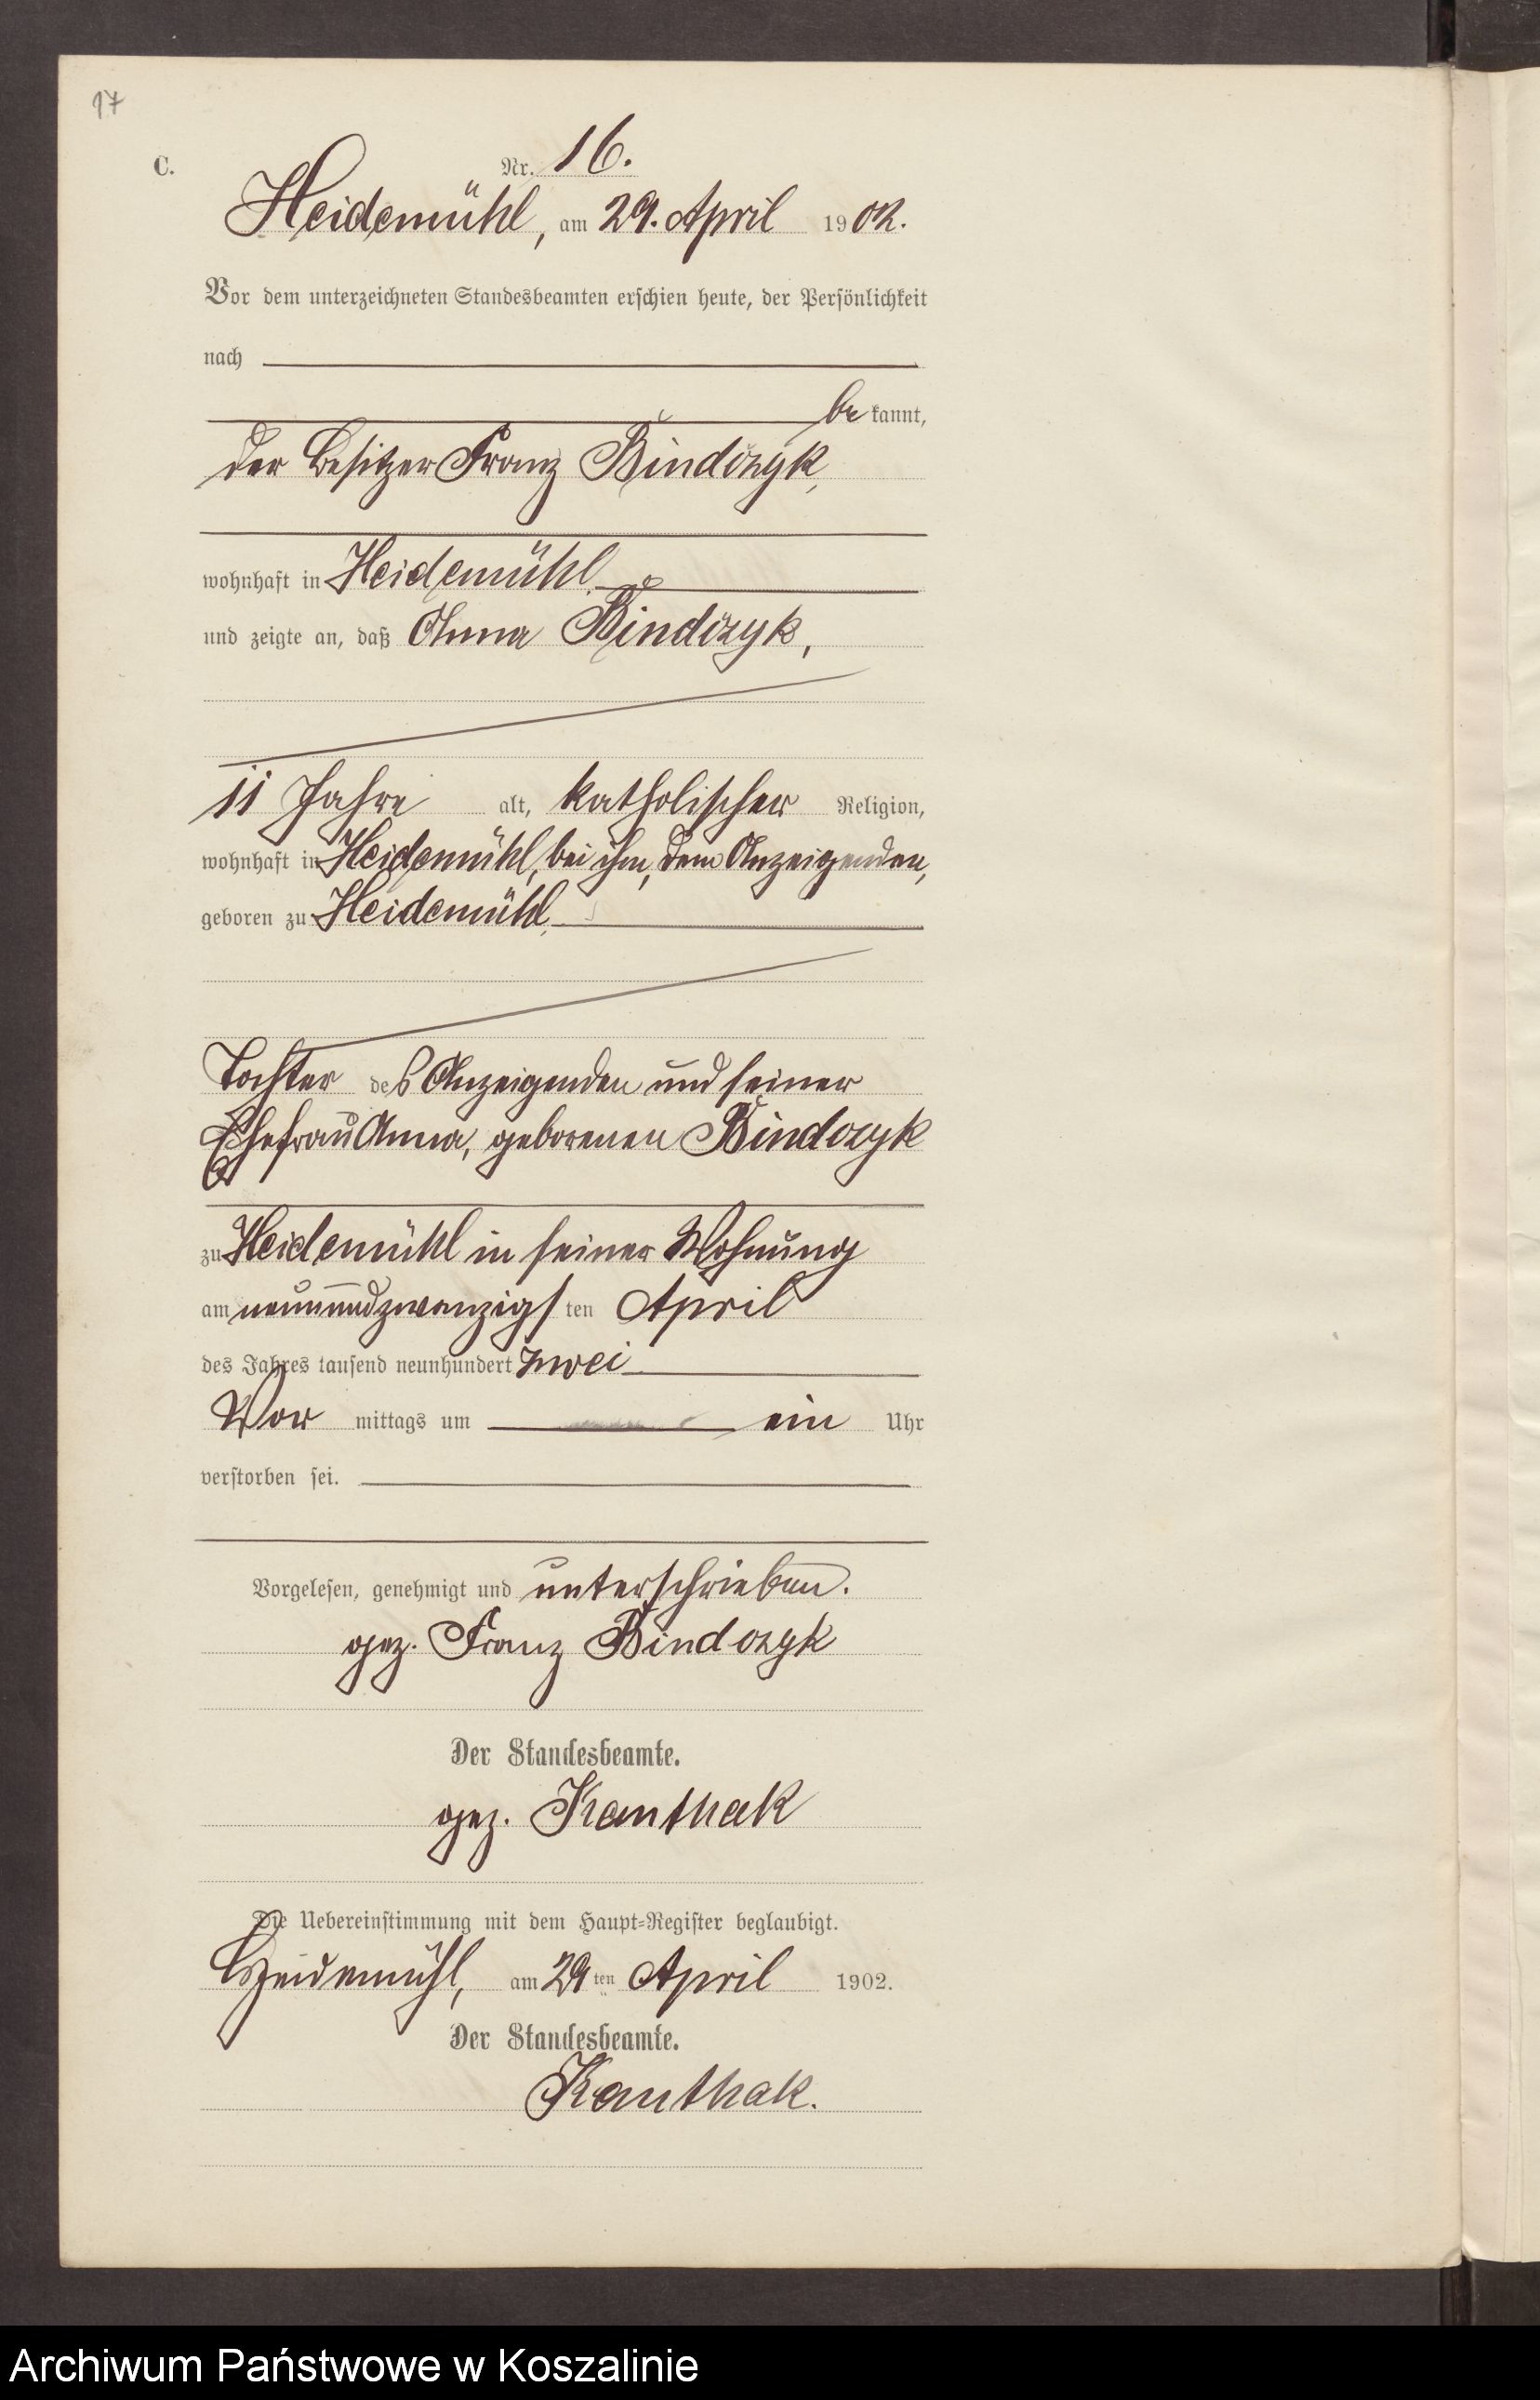 17
C.
Nr. 16.
Heidemühl, am 29. April 1902.
Vor dem unterzeichneten Standesbeamten erschien heute, der Persönlichkeit
nach
be kannt,
der Besitzer Franz Bindczyk,
wohnhaft in Heidemühl
und zeigte an, daß Anna Bindczyk,
11 Jahre alt, katholischer Religion,
wohnhaft in Heidemühl, bei ihm, dem Anzeigenden,
geboren zu Heidemühl,
Tochter des Anzeigenden und seiner
Ehefrau Anna, geborenen Bindczyk
zu Heidemühl in seiner Wohnung
am neunundzwanzigsten April
des Jahres tausend neunhundert zwei
Vor mittags um ein Uhr
verstorben sei.
Vorgelesen, genehmigt und unterschrieben.
gez. Franz Bindczyk
Der Standesbeamte.
gez. Kanthak
Die Uebereinstimmung mit dem Haupt-Register beglaubigt.
Heidemühl, am 29ten April 1902.
Der Standesbeamte.
Kanthak.
Archiwum Państwowe w Koszalinie